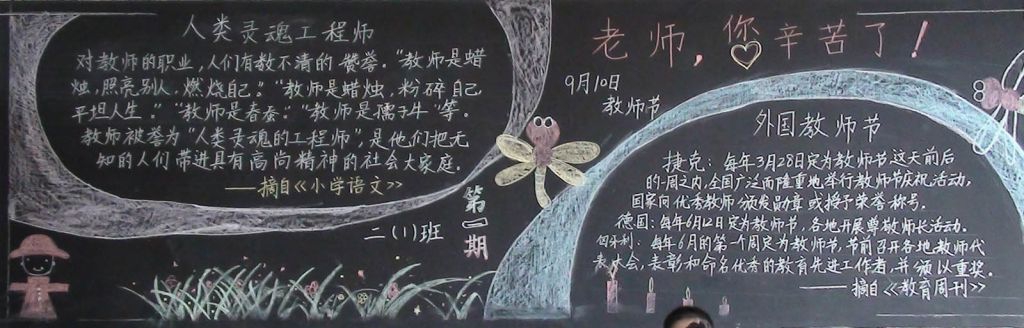 人类灵魂工程师
对教师的职业,人们有数不清的赞誉。“教师是蜡
烛,照亮别人,燃烧自己。”“教师是蜡烛,粉碎自己
平坦人生。”“教师是春蚕。”“教师是孺子牛”等。
教师被誉为“人类灵魂的工程师”,是他们把无
知的人们带进具有高尚精神的社会大家庭。
——摘自《小学语文》
二(1)班
第一期
老师,你辛苦了!
9月10日
教师节
外国教师节
捷克:每年3月28日定为教师节这天前后
的一周之内,全国广泛而隆重地举行教师节庆祝活动,
国家向优秀教师颁发勋章或授予荣誉称号。
德国:每年6月12日定为教师节,各地开展尊敬师长活动。
匈牙利:每年6月的第一个周定为教师节,节前召开各地教师代
表大会,表彰和命名优秀的教育先进工作者,并颁以重奖。
——摘自《教育周刊》